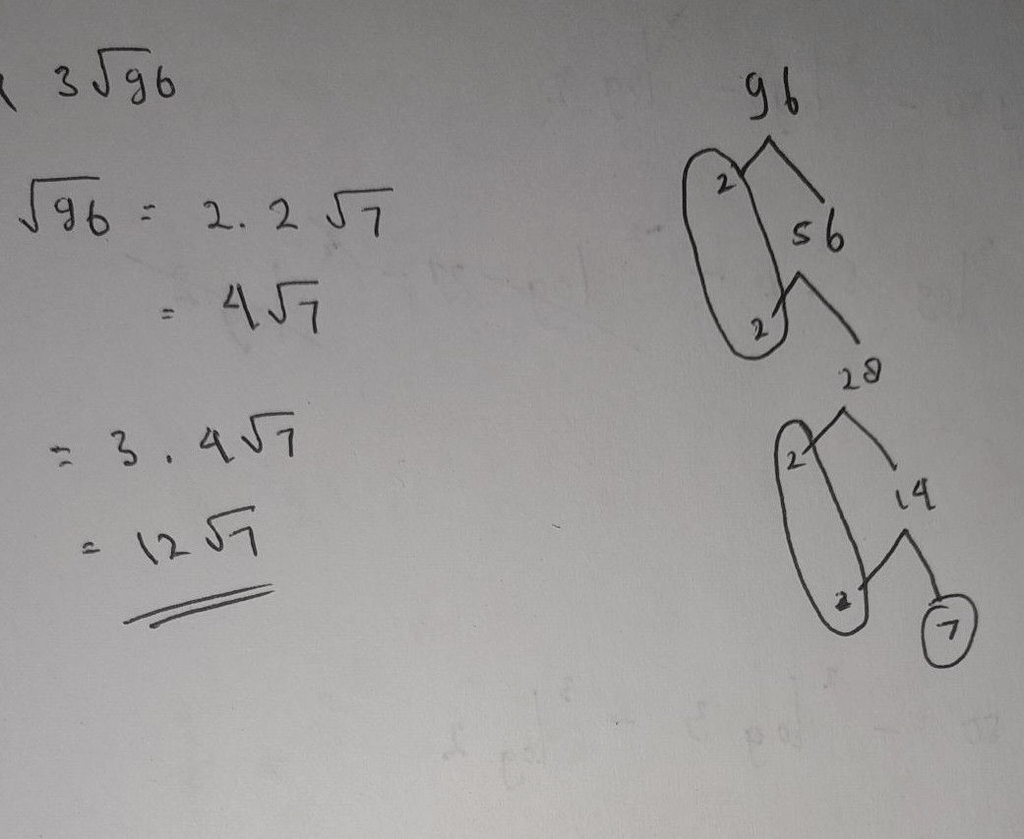 3√96
√96 = 2.2 √7
= 4√7
= 3 . 4√7
= 12√7
96
2
56
2
28
2
14
2
7